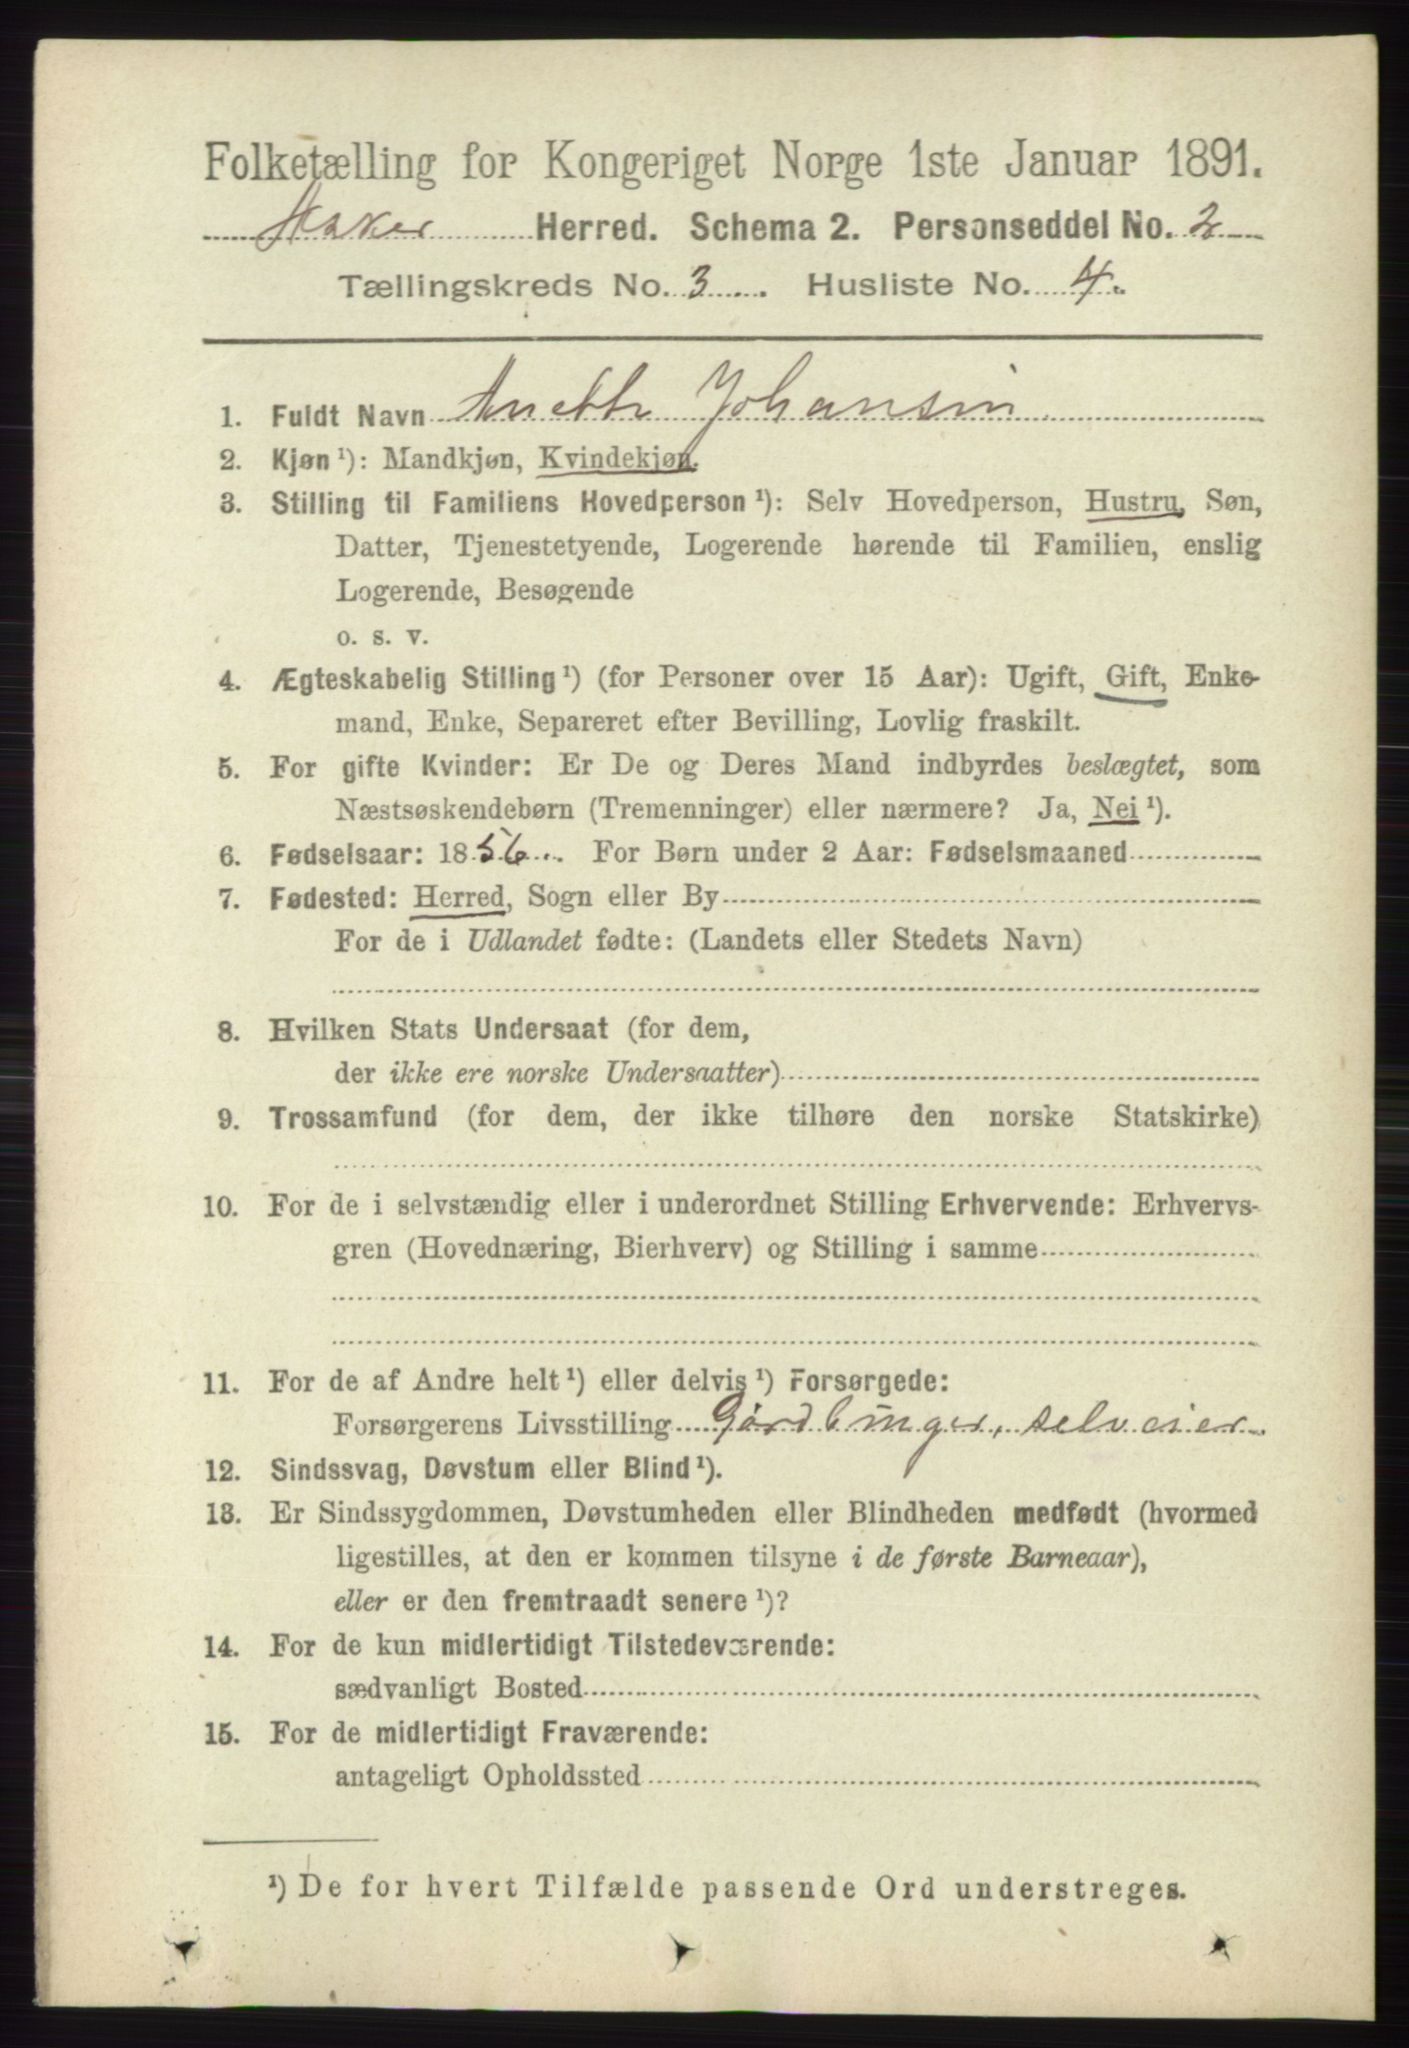 Folketælling for Kongeriget Norge 1ste Januar 1891.
Asker Herred. Schema 2. Personseddel No. 2
Tællingskreds No. 3. Husliste No. 4.
1. Fuldt Navn Anette Johansen
2. Kjøn ¹): Mandkjøn, Kvindekjøn.
3. Stilling til Familiens Hovedperson ¹): Selv Hovedperson, Hustru, Søn,
Datter, Tjenestetyende, Logerende hørende til Familien, enslig
Logerende, Besøgende
o. s. v.
4. Ægteskabelig Stilling ¹) (for Personer over 15 Aar): Ugift, Gift, Enke-
mand, Enke, Separeret efter Bevilling, Lovlig fraskilt.
5. For gifte Kvinder: Er De og Deres Mand indbyrdes beslægtet, som
Næstsøskendebørn (Tremenninger) eller nærmere? Ja, Nei ¹).
6. Fødselsaar: 1856. For Børn under 2 Aar: Fødselsmaaned
7. Fødested: Herred, Sogn eller By
For de i Udlandet fødte: (Landets eller Stedets Navn)
8. Hvilken Stats Undersaat (for dem,
der ikke ere norske Undersaatter)
9. Trossamfund (for dem, der ikke tilhøre den norske Statskirke)
10. For de i selvstændig eller i underordnet Stilling Erhvervende: Erhvervs-
gren (Hovednæring, Bierhverv) og Stilling i samme
11. For de af Andre helt ¹) eller delvis ¹) Forsørgede:
Forsørgerens Livsstilling Gårdbruger, selveier.
12. Sindssvag, Døvstum eller Blind ¹).
13. Er Sindssygdommen, Døvstumheden eller Blindheden medfødt (hvormed
ligestilles, at den er kommen tilsyne i de første Barneaar),
eller er den fremtraadt senere ¹)?
14. For de kun midlertidigt Tilstedeværende:
sædvanligt Bosted
15. For de midlertidigt Fraværende:
antageligt Opholdssted
¹) De for hvert Tilfælde passende Ord understreges.